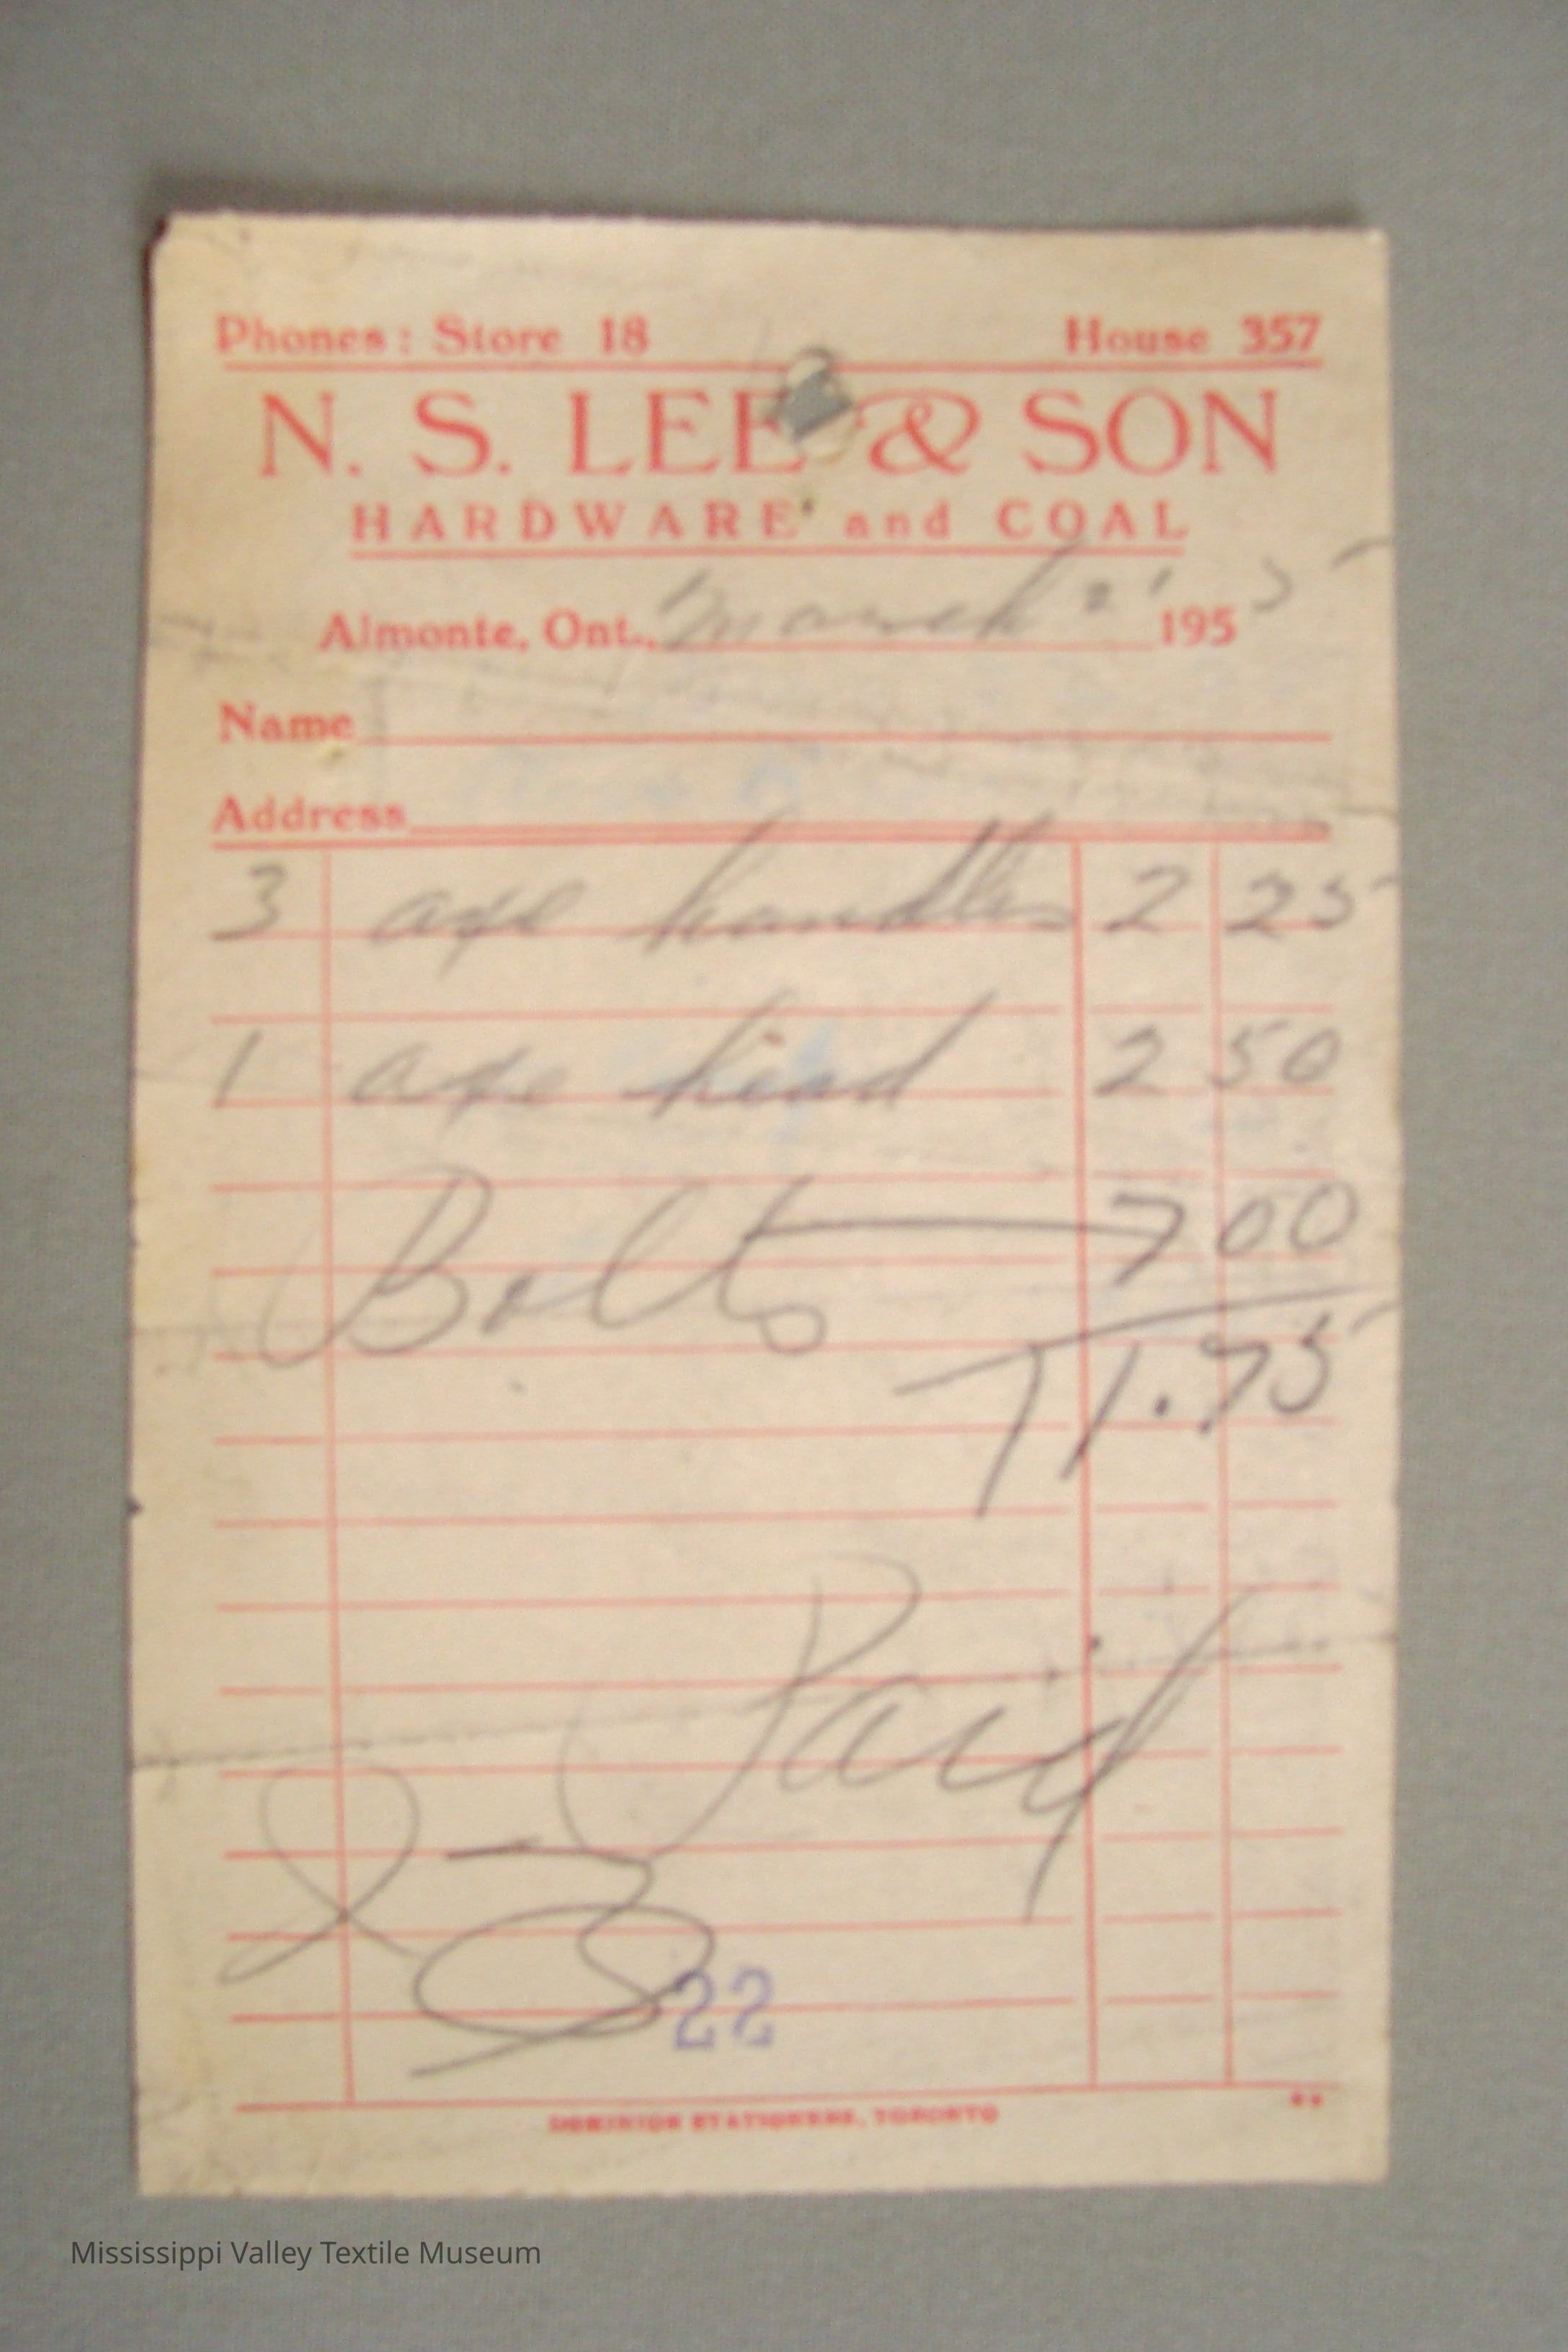 Phones: Store 18 House 357
N. S. LEE & SON
HARDWARE and COAL
Almonte, Ont., March 2 1955
Name
Address
3 axe handles 2 25
1 axe head 2 50
Bolts 7 00
11.75
Paid
22
DOMINION STATIONERS, TORONTO
Mississippi Valley Textile Museum